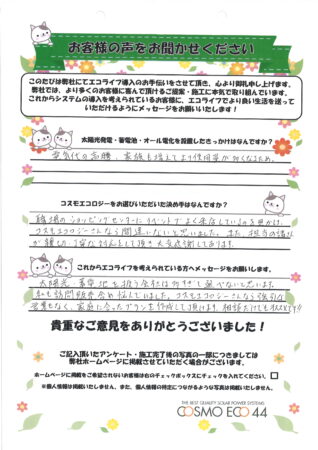 お客様の声をお聞かせください
このたびは弊社にてエコライフ導入のお手伝いをさせて頂き、心より御礼申し上げます。
弊社では、より多くのお客様に喜んで頂けるご提案・施工に本気で取り組んでいます。
これからシステムの導入を考えられているお客様に、エコライフでより良い生活を送って
いただけるようにメッセージをお願いいたします！
太陽光発電・蓄電池・オール電化を設置したきっかけはなんですか？
電気代の高騰、家族も増えてより使用量が多くなるため。
コスモエコロジーをお選びいただいた決め手はなんですか？
踊場のショッピングセンターにイベントでよく来店しているのを見かけ、
コスモエコロジーさんなら間違いないと思いました。また、担当の
が親切、丁寧な対応をして頂き大変感謝しております。
これからエコライフを考えられている方へメッセージをお願いします。
太陽光、蓄電池を扱う会社は多すぎて選べないと思います。
私も訪問販売含め悩んでいました。コスモエコロジーさんなら強引な
営業もなく、家庭に合ったプランを作成して頂けます。相談だけでも
貴重なご意見をありがとうございました！
ご記入頂いたアンケート・施工完了後の写真の一部につきましては
弊社ホームページに掲載させていただく場合がございます。
ホームページに掲載をご希望されないお客様は右のチェックボックスにチェックを入れてください。
※個人情報は掲載いたしません、また、個人情報の特定につながるような写真は掲載いたしません。
THE BEST QUALITY SOLAR POWER SYSTEMS
COSMO ECO 44